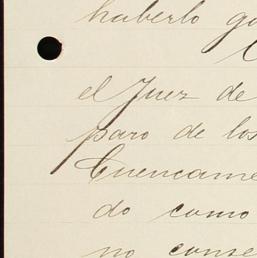 haberlo
el Juez de
paro de los
Cuencame
do como
no conse